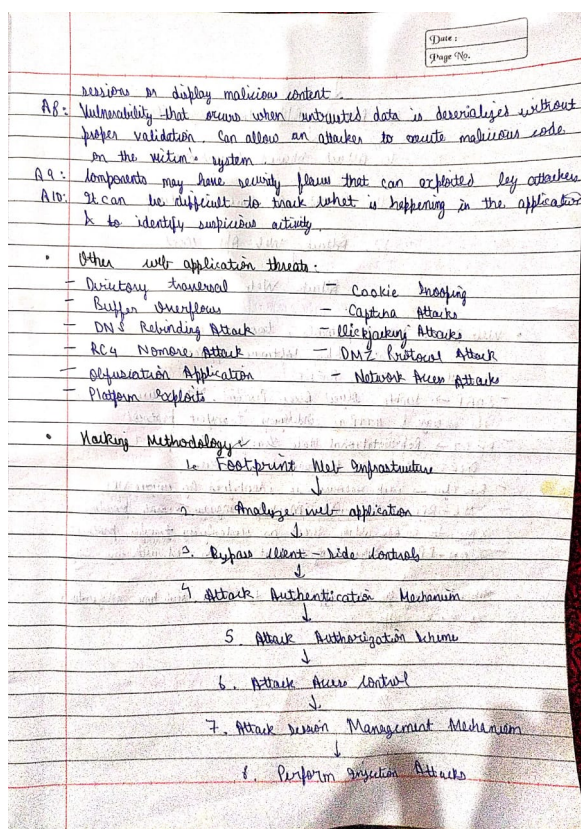 Date :
Page No.
sessions or display malicious content.
A8: Vulnerability that occurs when untrusted data is deserialized without
proper validation. Can allow an attacker to execute malicious code
on the victim's system.
A9: Components may have security flaws that can exploited by attackers
A10: It can be difficult to track what is happening in the application
& to identify suspicious activity.
• Other web application threats:
- Directory traversal - Cookie Snooping
- Buffer Overflows - Captcha Attacks
- DNS Rebinding Attack - Clickjacking Attacks
- RC4 Nomore Attack - DMZ Protocol Attack
- Obfuscation Application - Network Access Attacks
- Platform Exploits.
• Hacking Methodology
1. Footprint Web Infrastructure
↓
2. Analyze web application
↓
3. Bypass Client - Side Controls
↓
4. Attack Authentication Mechanism
↓
5. Attack Authorization Scheme
↓
6. Attack Access Control
↓
7. Attack Session Management Mechanism
↓
8. Perform Injection Attacks